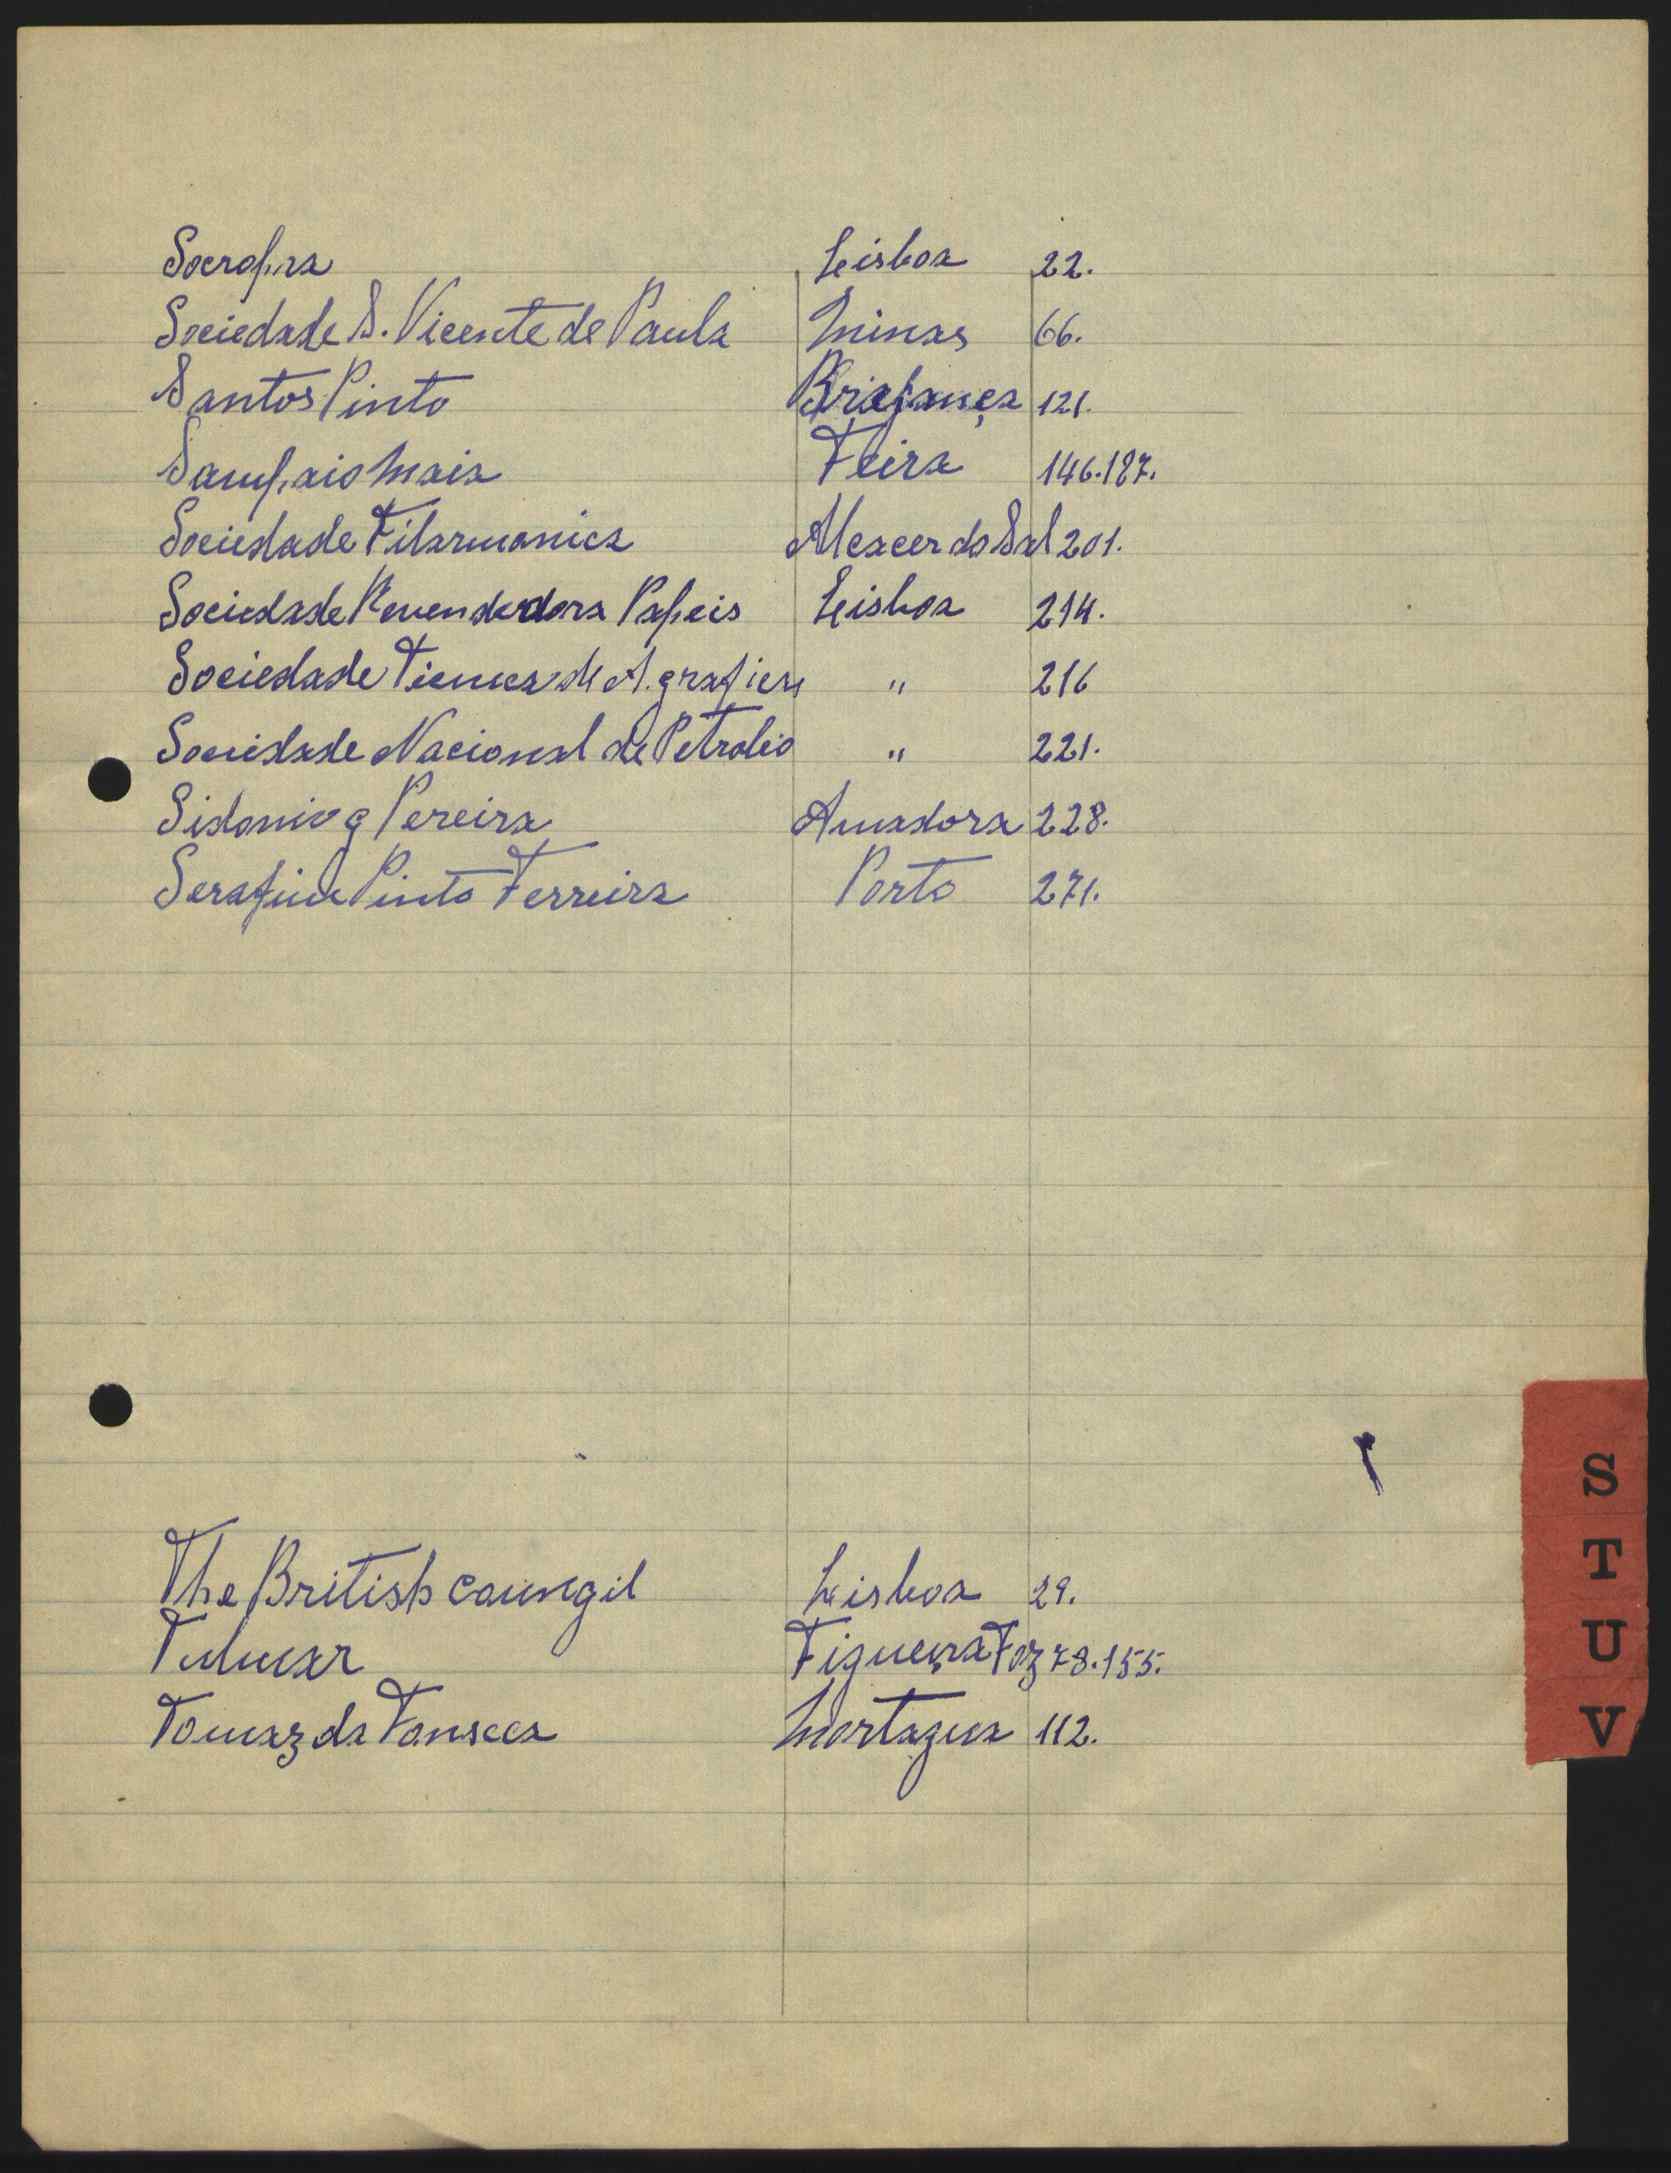 Socropra Lisboa 22.
Sociedade S. Vicente de Paula Minas 66.
Santos Pinto Bragança 121.
Sampaio Maia Feira 146.187.
Sociedade Filarmonica Alcacer do Sal 201.
Sociedade Revendedora Papeis Lisboa 214.
Sociedade Ticnica de A. graficas " 216
Sociedade Nacional de Petrolio " 221.
Sidonio g Pereira Amadora 228.
Serafim Pinto Ferreira Porto 271.
The British Coungil Lisboa 29.
Figueira Foz 78.155.
Tomaz da Fonseca Mortagua 112.
S
T
U
V